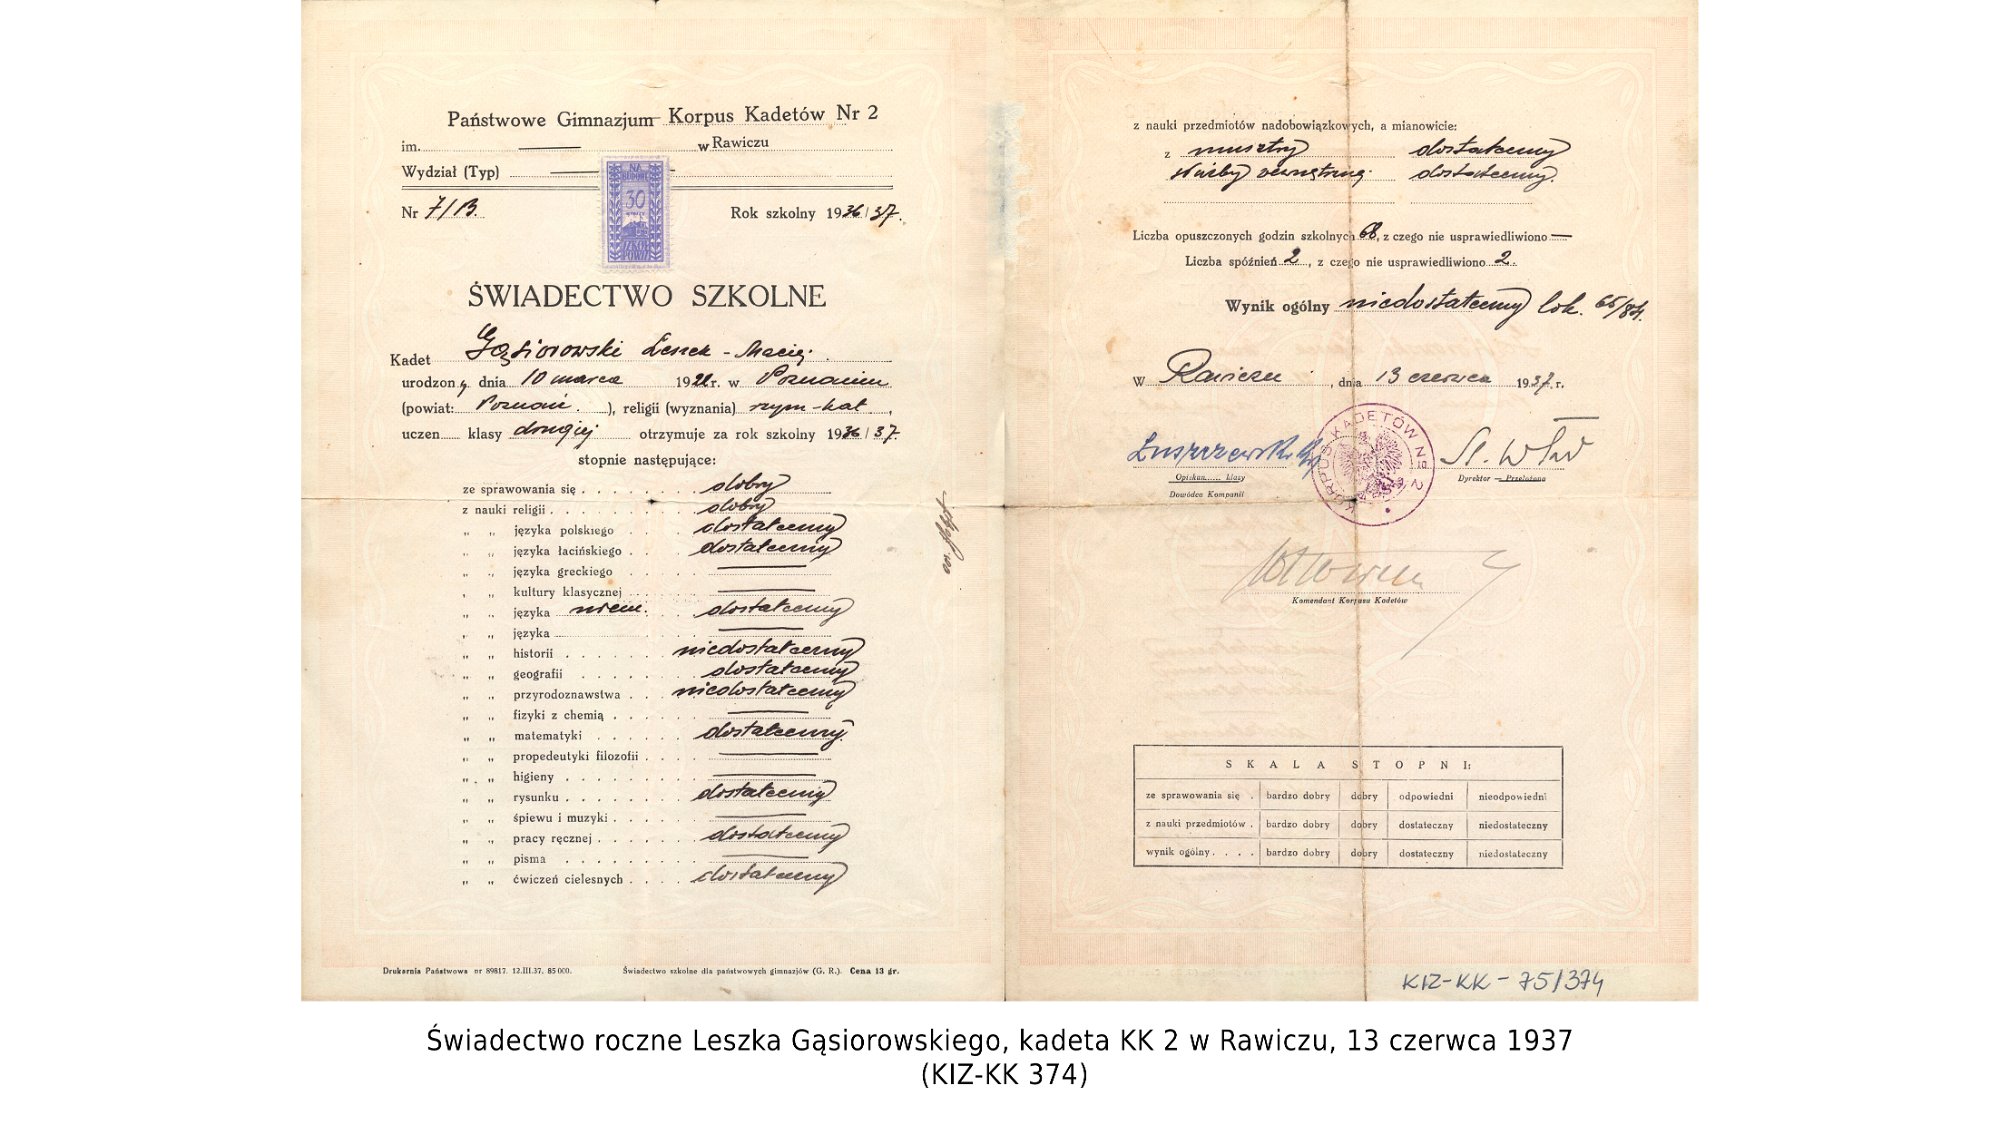 Państwowe Gimnazjum Korpus Kadetów Nr 2
im. w Rawiczu
Wydział (Typ)
NA
BUDOWĘ
30
GROSZY
SZKÓŁ
POWSZ
Nr 7/B. Rok szkolny 1936/37.
ŚWIADECTWO SZKOLNE
Kadet Gąsiorowski Leszek - Maciej
urodzony dnia 10 marca 1922 r. w Poznaniu
(powiat: Poznań ), religii (wyznania) rzym-kat ,
uczen klasy drugiej otrzymuje za rok szkolny 1936/37.
stopnie następujące:
ze sprawowania się . . . . . . . dobry
z nauki religii . . . . . . . . . dobry
„ „ języka polskiego . . . dostateczny
„ „ języka łacińskiego . . . dostateczny
„ „ języka greckiego . . . . .
„ „ kultury klasycznej . . . .
„ „ języka niem. . . . dostateczny
„ „ języka
„ „ historii . . . . . . niedostateczny
„ „ geografii . . . . . . dostateczny
„ „ przyrodoznawstwa . . . niedostateczny
„ „ fizyki z chemią . . . . . .
„ „ matematyki . . . . . dostateczny
„ „ propedeutyki filozofii . . . .
„ „ higieny . . . . . . . .
„ „ rysunku . . . . . . . dostateczny
„ „ śpiewu i muzyki . . . . .
„ „ pracy ręcznej . . . . . dostateczny
„ „ pisma . . . . . . . .
„ „ ćwiczeń cielesnych . . . . dostateczny
Drukarnia Państwowa nr 89817. 12.III.37. 85 000. Świadectwo szkolne dla państwowych gimnazjów (G. R.). Cena 13 gr.
z nauki przedmiotów nadobowiązkowych, a mianowicie:
z musztry dostateczny
służby zewnętrznej dostateczny.
Liczba opuszczonych godzin szkolnych 68, z czego nie usprawiedliwiono —
Liczba spóźnień 2, z czego nie usprawiedliwiono 2.
Wynik ogólny niedostateczny lok. 65/84.
W Rawiczu , dnia 13 czerwca 1937. r.
KORPUS KADETÓW No 2
Opiekun klasy
Dowódca Kompanii
Dyrektor — Przełożona
Komendant Korpusu Kadetów
SKALA STOPNI:
ze sprawowania się . bardzo dobry dobry odpowiedni nieodpowiedni
z nauki przedmiotów . bardzo dobry dobry dostateczny niedostateczny
wynik ogólny . . . . bardzo dobry dobry dostateczny niedostateczny
KIZ-KK - 75/374
Świadectwo roczne Leszka Gąsiorowskiego, kadeta KK 2 w Rawiczu, 13 czerwca 1937
(KIZ-KK 374)